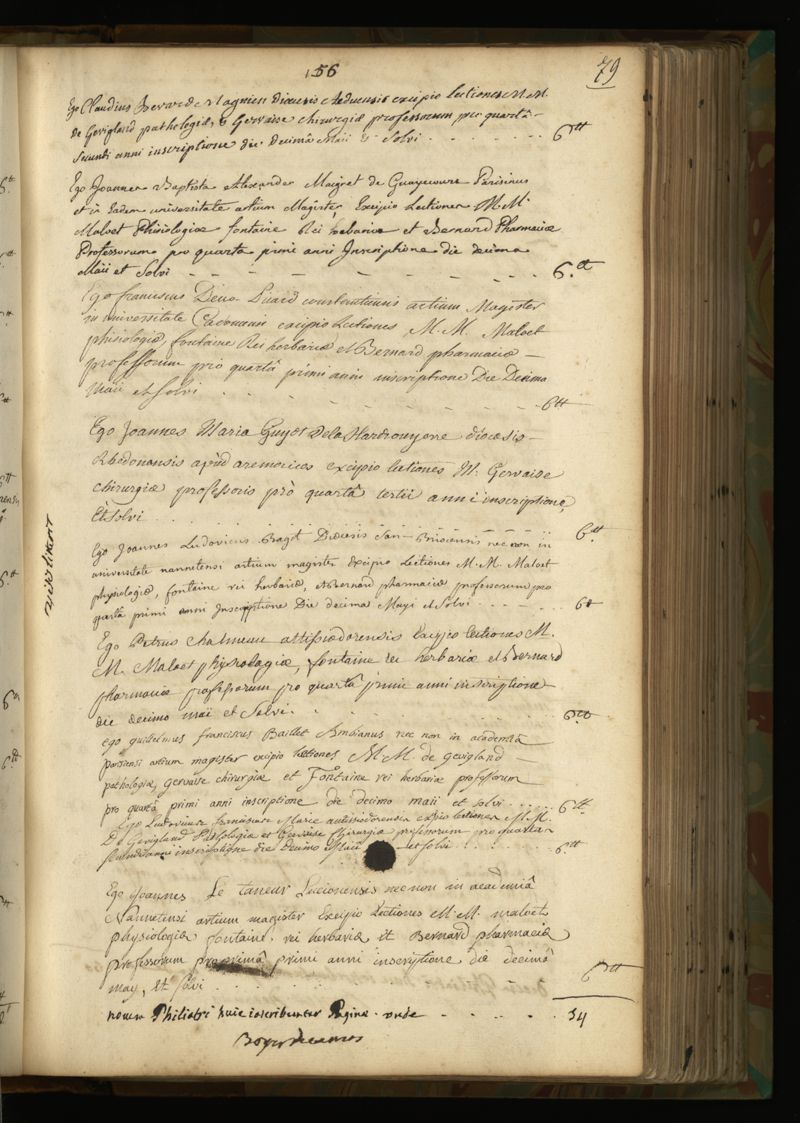 156
79
Ego Claudius Magnien dioecesis Aeduensis excipio lectiones M.M.
de Gevigland pathologiæ, & Gervaise chirurgiæ professorum pro quartâ
secundi anni inscriptione die decimâ Maii et Solvi . . . . . . 6tt
Ego Joannes Baptista Alexander Maigret de Parisinus
et in Eadem universitate artium Magister, Excipio Lectiones M.M.
Maloet Phisiologiæ fontaine Rei herbariæ et Bernard Pharmaciæ
Professorum pro quarta primi anni Inscriptione die decima
Maii et Solvi - - - - - - - - - 6.tt
Ego franciscus Deva Liard constantiensis artium Magister
in universitate Cadomensi excipio Lectiones M. M. Maloet
phisiologiæ, fontaine Rei herbariæ et Bernard pharmaciæ —
professorum pro quartâ primi anni inscriptione Die Decima
Maii et solvi . . - - - - - - - 6tt
Ego Joannes Maria Guyot Dela diocesis —
Rhedonensis apud aremoricos excipio lectiones M. Gervaise
chirurgiæ professoris prò quartâ tertii anni inscriptione,
Et solvi . . . . . . . 6.tt
Ego Joannes Ludovicus Bragit Diocesis San-Briocensis nec non in
universitate nannetensi artium magister excipio Lectiones M.M. Maloet
physiologiæ, fontaine rei herbariæ, & Bernard pharmaciæ professorum pro
quarta primi anni Inscriptione Die decima Mayi et Solvi . . . . . 6tt
Ego Petrus Chalmeau altissiodorensis Excipio lectiones M.
M. Maloet physiologiæ, fontaine rei herbariæ et Bernard
pharmaciæ professorum pro quartâ primi anni inscriptione
die decimo maii et Solvi. . . . . . . . 6tt
ego guillelmus franciscus Baillet Ambianus nec non in academiâ
parisiensi artium magister excipio lectiones M.M. de gevigland —
pathologiæ, gervaise chirurgiæ et Fontaine rei herbariæ professorum
pro quartâ primi anni inscriptione die decimo maii et solvi . . . . . 6tt
Ego Ludovicus franciscus Marie autissiodorensis excipio lectiones M.M.
De Gevigland Pathologiæ et Gervaise Chirurgiæ professorum pro quarta
secundi anni inscriptione die decimo Maii et solvi . . . . . . 6tt
Ego Joannes Le taneur Lucionensis nec non in academiâ
Nannetensi artium magister Excipio Lectiones M.M. maloet
physiologiæ fontaine. rei herbariæ et Bernard pharmaciæ
professorum pro primâ primi anni inscriptione die decimâ
may, et solvi . . . . . . 6tt
novem Philiatri huic inscribuntur Paginæ. unde . . . . . 54